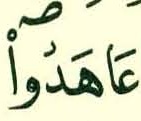 عَاهَدُواْۖ